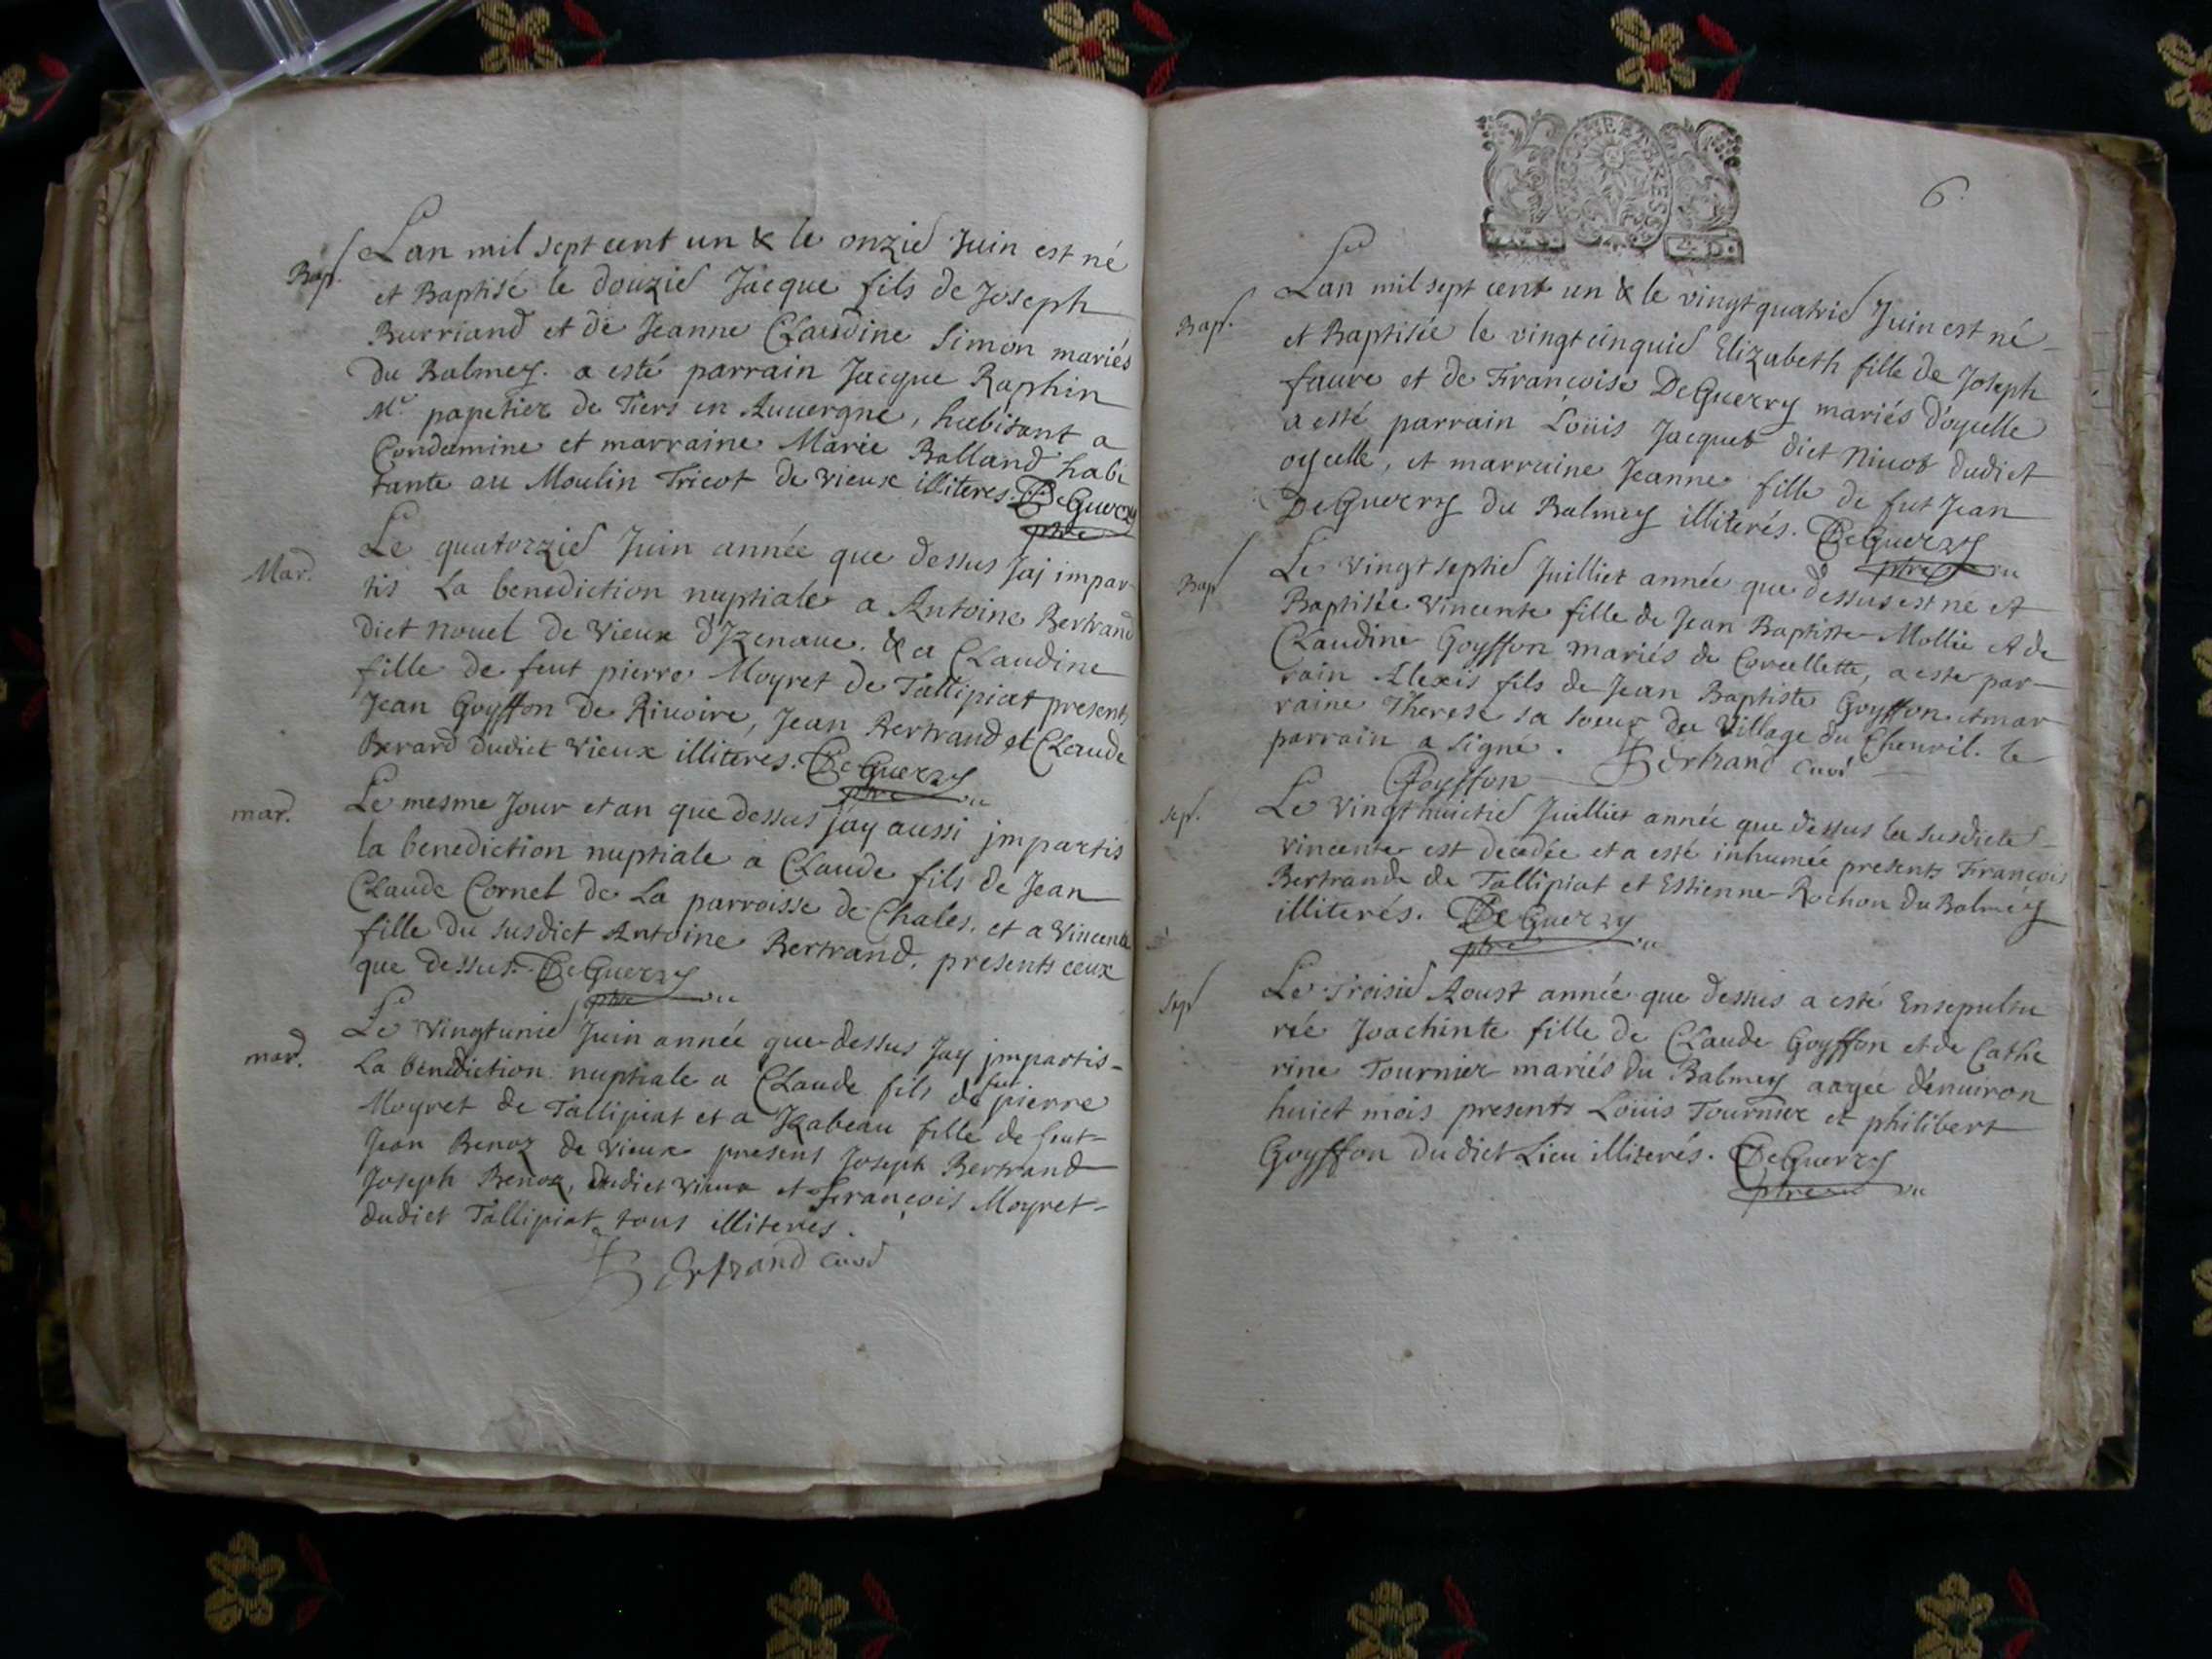 Bap.
Lan mil sept cent un & le onzie Juin est né
et Baptisé le douzie Jacque fils de Joseph
Burriand et de Jeanne CLaudine Simon mariés
du Balmey. a esté parrain Jacque Raphin
Mr. papetier de Tiers en Auuergne, habitant a
Condamine et marraine Marie Balland habi
tante au Moulin Tricot de vieux illiteres. DeGuerry
ptre
Mar.
Le quatorzie Juin année que dessus Jaj impar
tis La benediction nuptiale a Antoine Bertrand
dict nouel de Vieux d'Izenaue. & a CLaudine
fille de feut pierre Moyret de Tallipiat presents
Jean Goyffon de Riuoire, Jean Bertrand et CLaude
Berard dudict Vieux illiteres. DeGuerry
ptre vic
mar.
Le mesme Jour et an que dessus jay aussi jmpartis
la benediction nuptiale a CLaude fils de Jean
CLaude Cornet de La parroisse de Chales, et a Vincente
fille du susdict Antoine Bertrand, presents ceux
que dessus. DeGuerry
ptre vic
mar.
Le Vingtunie Juin année que dessus Jay jmpartis
La benediction nuptiale a CLaude fils de feu pierre
Moyret de Tallipiat et a Izabeau fille de feut
Jean Benoz de Vieux present Joseph Bertrand
Joseph Benoz, dudict vieux et François Moyret
dudict Tallipiat tous illiteres.
Bertrand curé
6.
GENERALITE
4. D.
Bap.
Lan mil sept cent un & le vingt quatrie Juin est né
et Baptisée le vingt cinquie Elizabeth fille de Joseph
faure et de Francoise DeGuerry mariés d'oyselle
a esté parrain Loüis Jacquet dict Niuot dudict
oyselle, et marraine Jeanne fille de fut Jean
DeGuerry du Balmey illiterés. DeGuerry
ptre vic
Bap
Le Vingt septie Juilliet année que dessus est né et
Baptisée Vincente fille de Jean Baptiste Mollie et de
CLaudine Goyffon mariés de Corcellette, a este par
rain Alexis fils de Jean Baptiste Goyffon et mar
raine Therese sa soeur du Village du Chenuil. le
parrain a signé. Bertrand curé
Goyffon
Sep.
Le Vingt huictie Juilliet année que dessus la susdicte
vincente est decedée et a esté inhumée presents Francois
Bertrand de Tallipiat et Estienne Rochon du Balmey
illiterés. DeGuerry
ptre vic
Sep
Le Troisie Aoust année que dessus a esté Ensepultu
rée Joachinte fille de CLaude Goyffon et de Cathe
rine Tournier mariés du Balmey aagée d'enuiron
huict mois presents Loüis Tournier et philibert
Goyffon dudict Lieu illiterés. DeGuerry
ptre vic